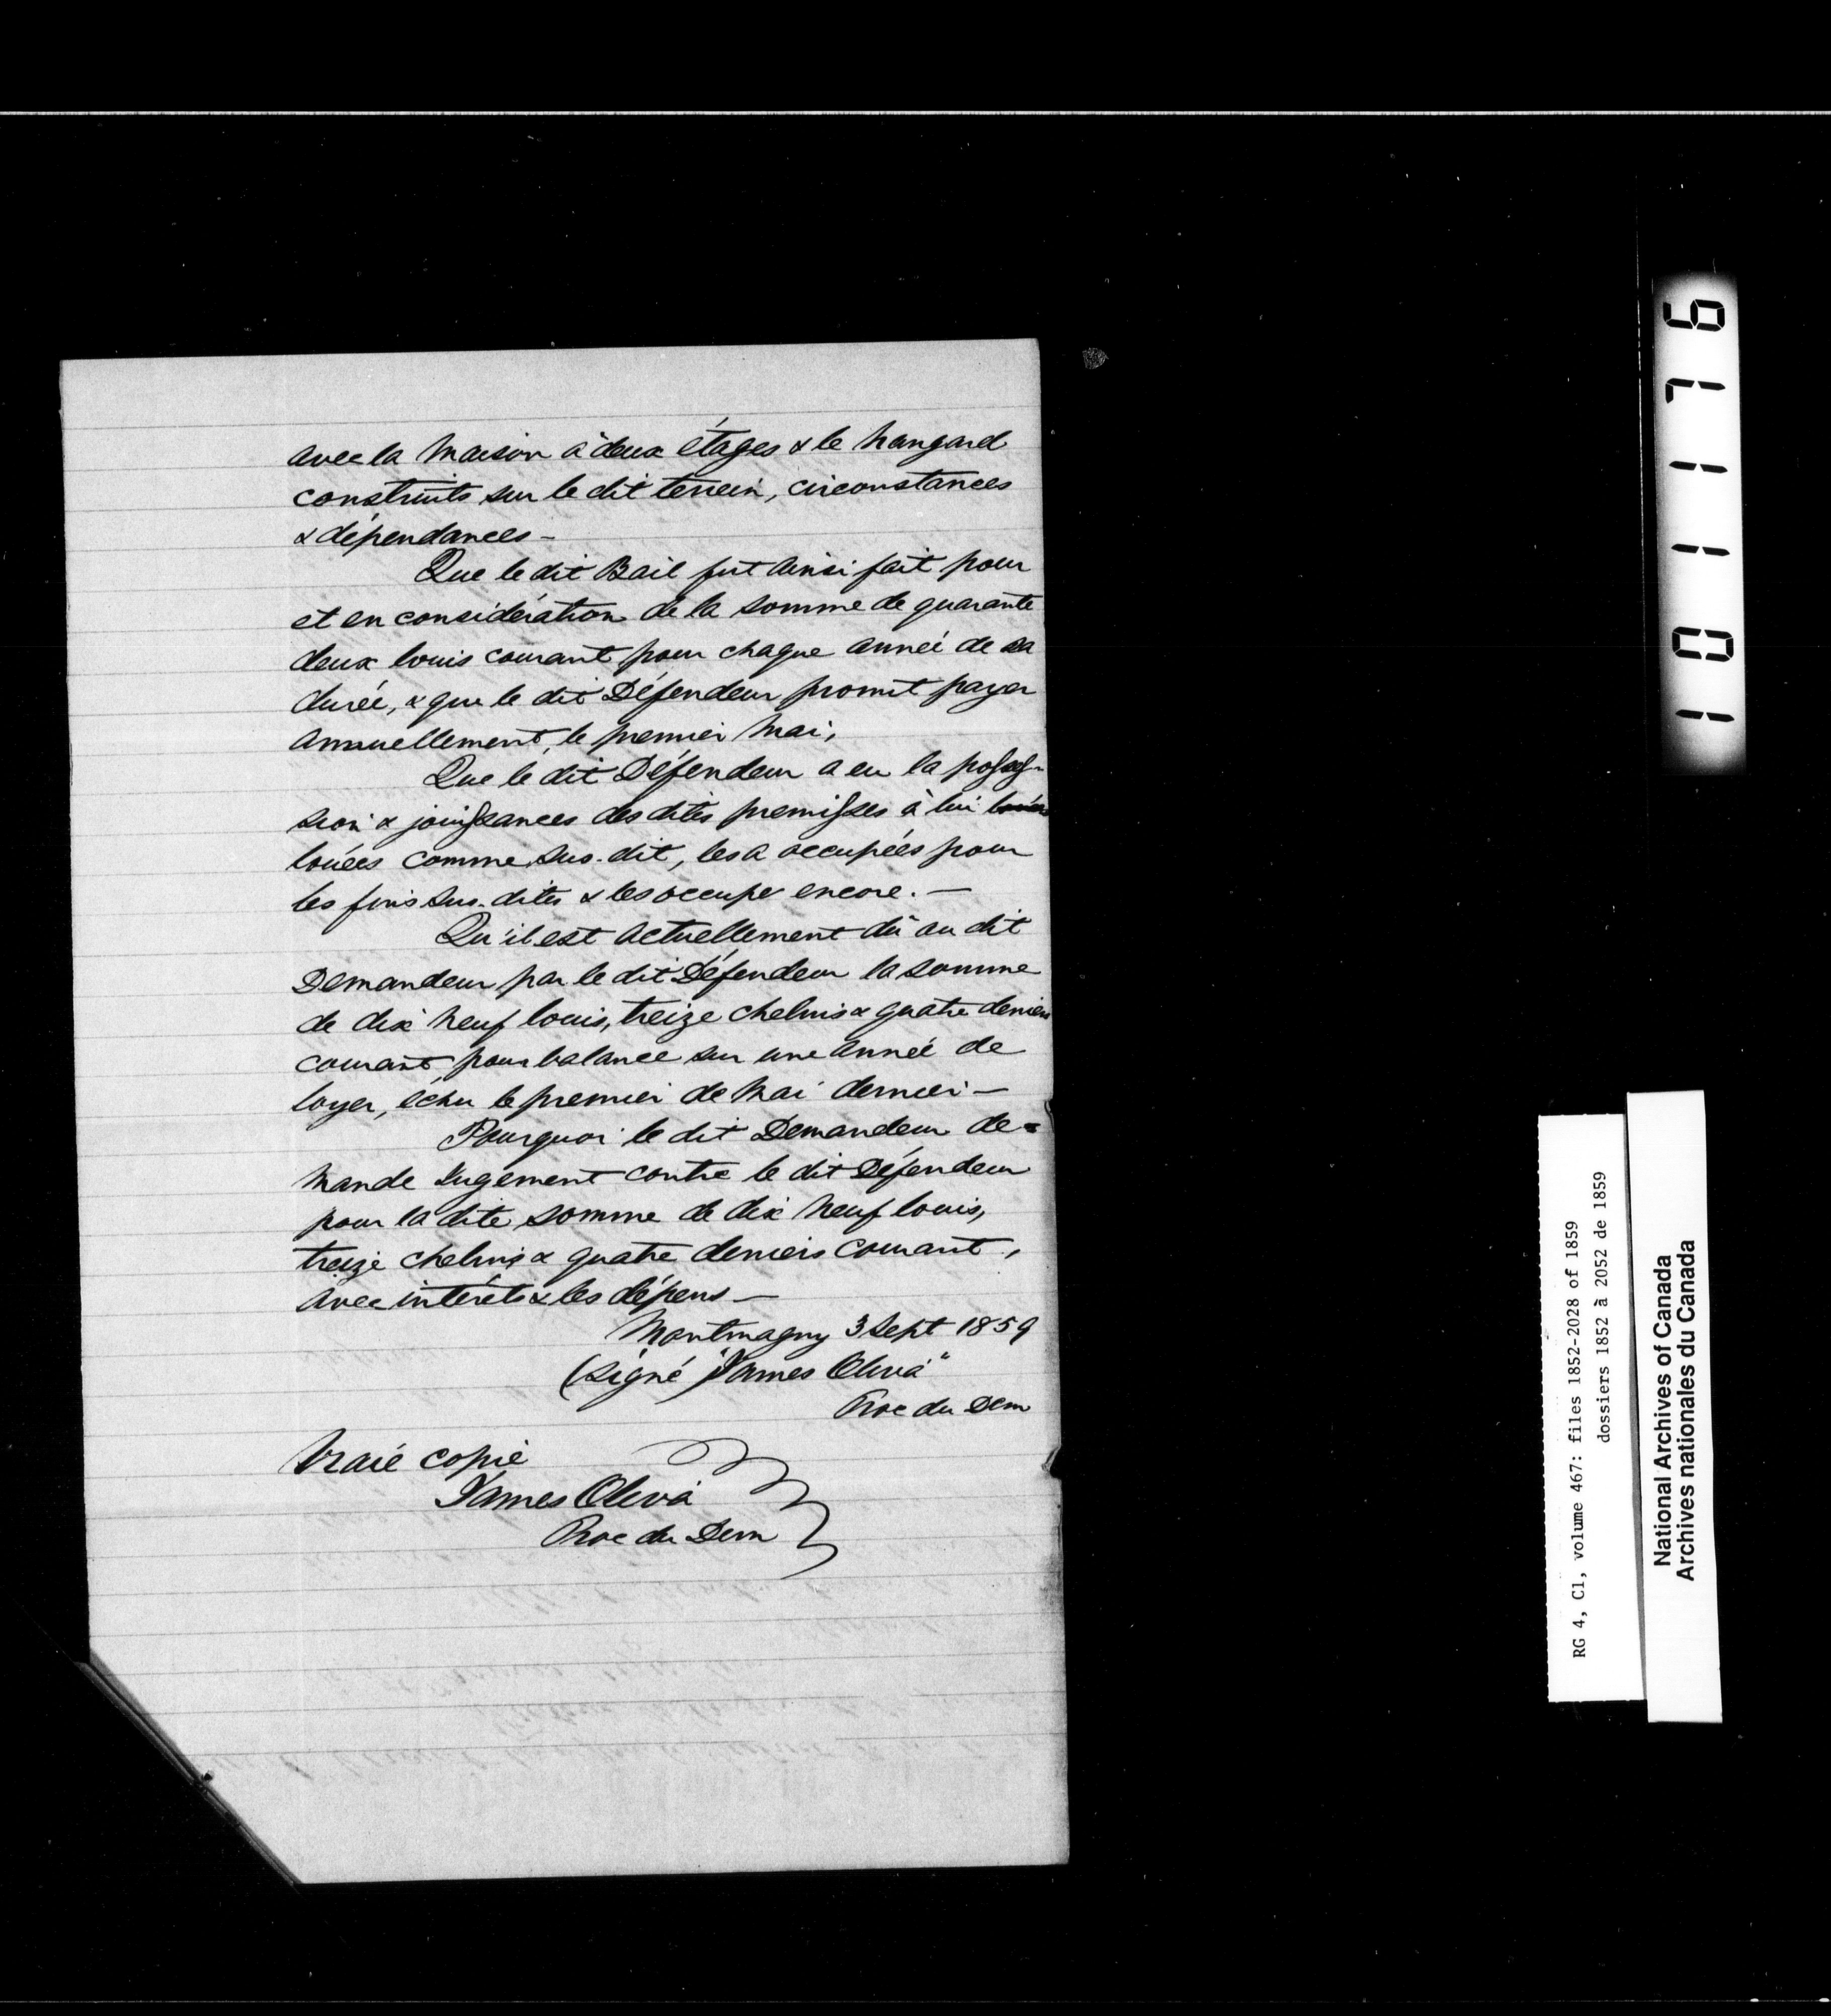 avec la maison à deux étages & le hangard
construits sur le dit terrein, circonstances
& dépendances -
Que le dit Bail fut ainsi fait pour
et en considération de la somme de quarante
deux louis courant pour chaque année de sa
durée, & que le dit Défendeur promit payer
annuellement, le premier mai,
Que le dit Défendeur a eu la posses-
sion & jouissances des dites premisses à lui
louées comme sus-dit, les a occupées pour
les fins sus-dites & les occupe encore. -
Qu'il est actuellement dû au dit
Demandeur par le dit Défendeur la somme
de dix neuf louis, treize chelins & quatre deniers
courant, pour balance sur une année de
loyer, échu le premier de mai dernier -
Pourquoi le dit Demandeur de=
mande Jugement contre le dit Défendeur
pour la dite somme de dix neuf louis,
treize chelins & quatre deniers courant,
avec intérêts & les dépens -
Montmagny 3 Sept 1859
(signé) "James Oliva"
Proc du Dem
Vraie copie
James Oliva
Proc du Dem
101176
RG 4, C1, volume 467: files 1852-2028 of 1859
dossiers 1852 à 2052 de 1859
National Archives of Canada
Archives nationales du Canada